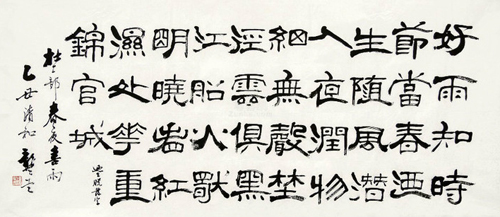 好雨知時
節當春迺
生随風潜
入夜潤物
細無聲埜
徑雲俱黑
江船火獨
明曉看紅
濕处花重
錦官城
杜工部春夜喜雨
乙丑清和 龔望